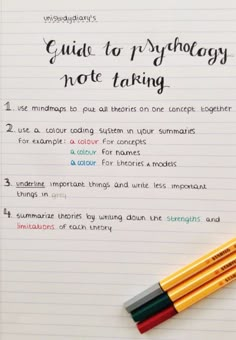 unistudydiary's
Guide to psychology
note taking
1. use mindmaps to put all theories on one concept together
2. use a colour coding system in your summaries
for example: a colour for concepts
a colour for names
a colour for theories & models
3. underline important things and write less important
things in grey
4. summarize theories by writing down the strengths and
limitations of each theory
STABILO
STABILO